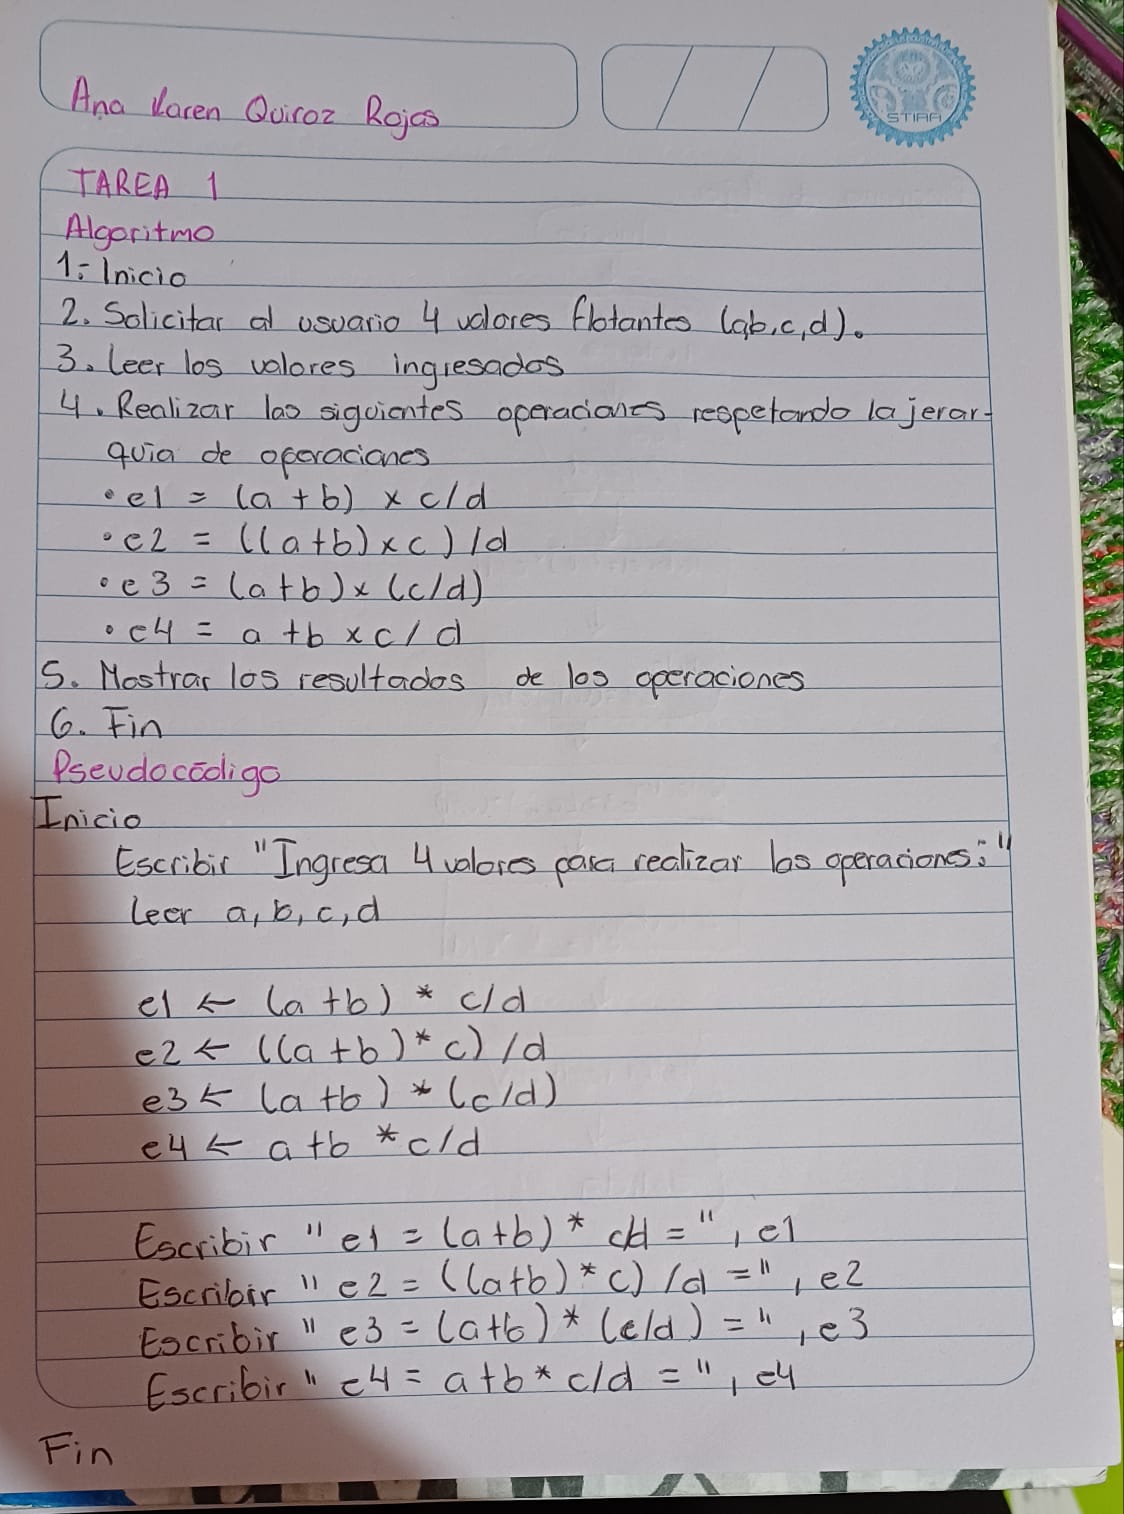 Ana Karen Quiroz Rojas
STIAA
TAREA 1
Algoritmo
1.- Inicio
2. Solicitar al usuario 4 valores flotantes (a,b,c,d).
3. Leer los valores ingresados
4. Realizar las siguientes operaciones respetando la jerar-
quia de operaciones
• e1 = (a + b) x c/d
• e2 = ((a+b) x c) /d
• e3 = (a+b) x (c/d)
• e4 = a + b x c / d
5. Mostrar los resultados de las operaciones
6. Fin
Pseudocódigo
Inicio
Escribir "Ingresa 4 valores para realizar las operaciones:"
Leer a, b, c, d
e1 ← (a+b) * c/d
e2 ← ((a+b) * c) /d
e3 ← (a+b) * (c/d)
e4 ← a+b * c/d
Escribir " e1 = (a+b) * c/d = ", e1
Escribir " e2 = ((a+b) * c) /d = ", e2
Escribir " e3 = (a+b) * (c/d) = ", e3
Escribir " e4 = a+b * c/d = ", e4
Fin